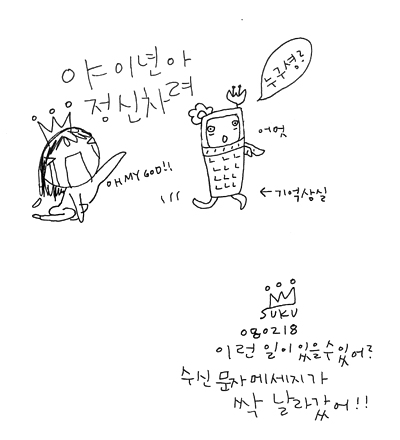 야 이년아
정신차려
누구셩?
어멋
OH MY GOD!!
←기억상실
SUKU
080218
이런 일이 있을수 있어?
수신 문자메세지가
싹 날라갔어!!